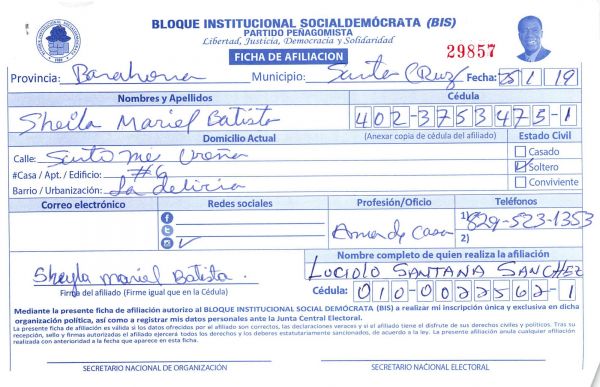 BLOQUE INSTITUCIONAL SOCIALDEMÓCRATA (BIS)
PARTIDO PEÑAGOMISTA
Libertad, Justicia, Democracia y Solidaridad
FICHA DE AFILIACION
29857
Provincia: Barahona Municipio: Santa Cruz Fecha: 25/1/19
Nombres y Apellidos Cédula
Sheila Mariel Batista 402-3753475-1
Domicilio Actual (Anexar copia de cédula del afiliado) Estado Civil
Calle: Santo me Ureña Casado
#Casa / Apt. / Edificio: #6 Soltero
Barrio / Urbanización: La delicia Conviviente
Correo electrónico Redes sociales Profesión/Oficio Teléfonos
Ama de Casa 1) 829-523-1353
2)
Nombre completo de quien realiza la afiliación
Sheyla Mariel Batista. LUCIOLO SANTANA SANCHEZ
Firma del afiliado (Firme igual que en la Cédula) Cédula: 010-0022562-1
Mediante la presente ficha de afiliación autorizo al BLOQUE INSTITUCIONAL SOCIAL DEMÓCRATA (BIS) a realizar mi inscripción única y exclusiva en dicha
organización política, así como a registrar mis datos personales ante la Junta Central Electoral.
La presente ficha de afiliación es válida si los datos ofrecidos por el afiliado son correctos, las declaraciones veraces y si el afiliado tiene el disfrute de sus derechos civiles y políticos. Tras su
recepción, sello y firmas autorizadas el afiliado ejercerá todos los derechos y los deberes estatutariamente sancionados, de acuerdo a la ley. La presente afiliación anula cualquier afiliación
realizada con anterioridad a la fecha que aparece en esta ficha.
SECRETARIO NACIONAL DE ORGANIZACIÓN SECRETARIO NACIONAL ELECTORAL